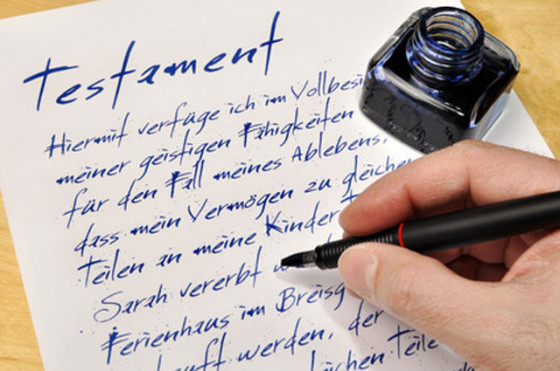 Testament
Hiermit verfüge ich im Vollbesi
meiner geistigen Fähigkeiten
für den Fall meines Ablebens,
dass mein Vermögen zu gleichen
Teilen an meine Kinder
Sarah vererbt
Ferienhaus im Breisg
auft werden, der
lichen Teile